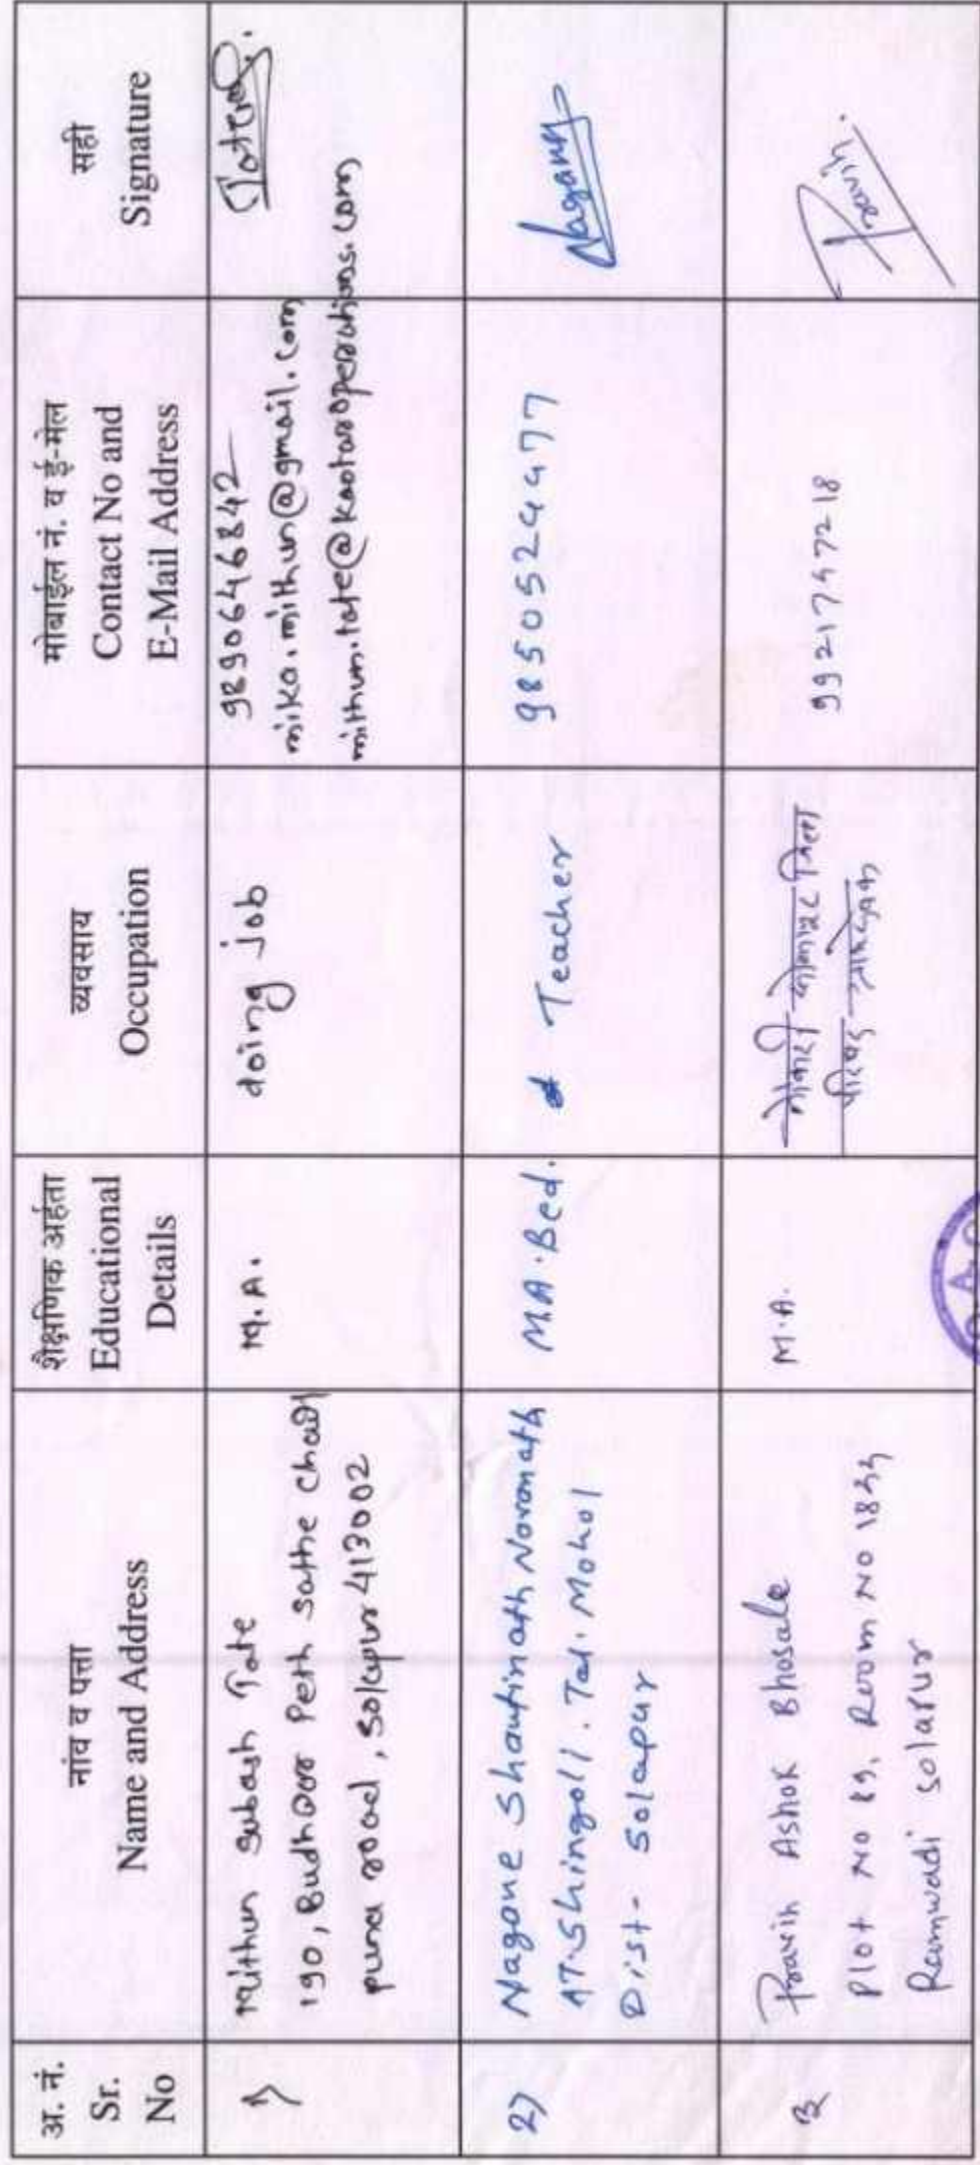 अ. नं.
Sr.
No
नांव व पत्ता
Name and Address
शैक्षणिक अर्हता
Educational
Details
व्यवसाय
Occupation
मोबाईल नं. व ई-मेल
Contact No and
E-Mail Address
सही
Signature
1)
Mithun Subash Tate
190, Budhwar Peth sathe chawl
puna road, Solapur 413002
M.A.
doing job
9890646842
mika.mithun@gmail.com
Tate
2)
Nagane Shantinath Navanath
AT. Shingoli. Tal. Mohol
Dist- Solapur
M.A. Bed.
Teacher
Nagane
3
Pravin Ashok Bhosale
Plot No Room No
Ramwadi Solapur
M.A.
नोकरी
Pravin